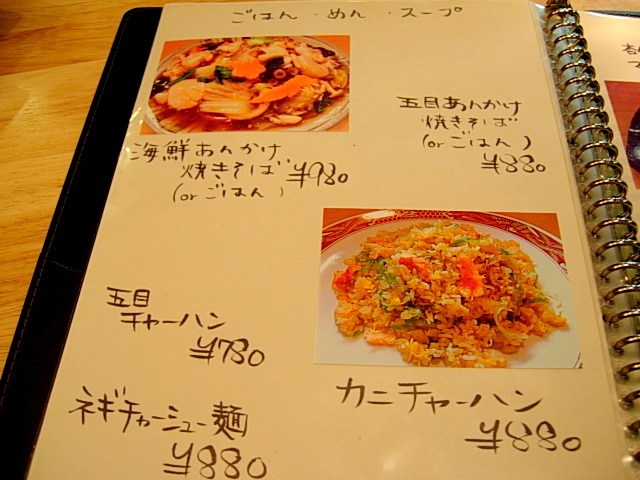 ごはん ・ めん ・ スープ
海鮮あんかけ
焼きそば ¥980
(or ごはん)
五目あんかけ
焼きそば
(or ごはん)
¥880
五目
チャーハン
¥780
カニチャーハン
¥880
ネギチャーシュー麺
¥880